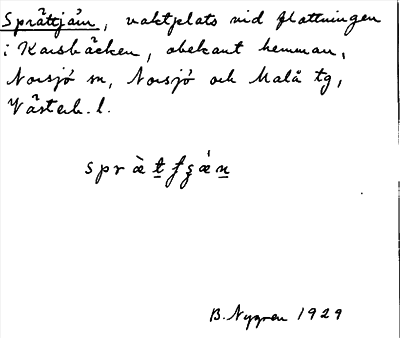 Sprättjän, vaktplats vid flottningen
i Karsbäcken, obekant hemman,
Norsjö sn, Norsjö och Malå tg,
Västerb. l.
B. Nygren 1929